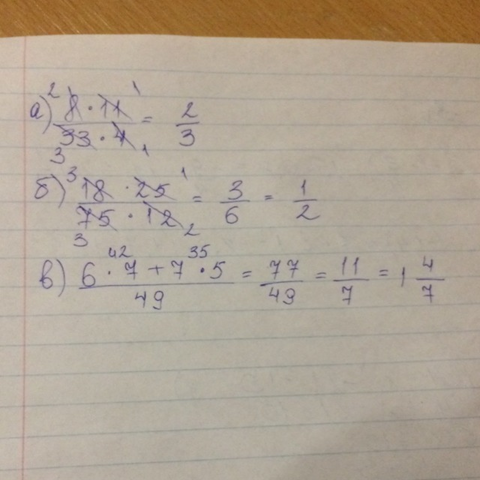 а) ²8̸ · 1̸1̸¹ / ₃3̸3̸ · 4̸₁ = 2/3
б) ³1̸8̸ · 2̸5̸¹ / ₃7̸5̸ · 1̸2̸₂ = 3/6 = 1/2
в) 6 ·⁴² 7 + 7 ·³⁵ 5 / 49 = 77/49 = 11/7 = 1 4/7